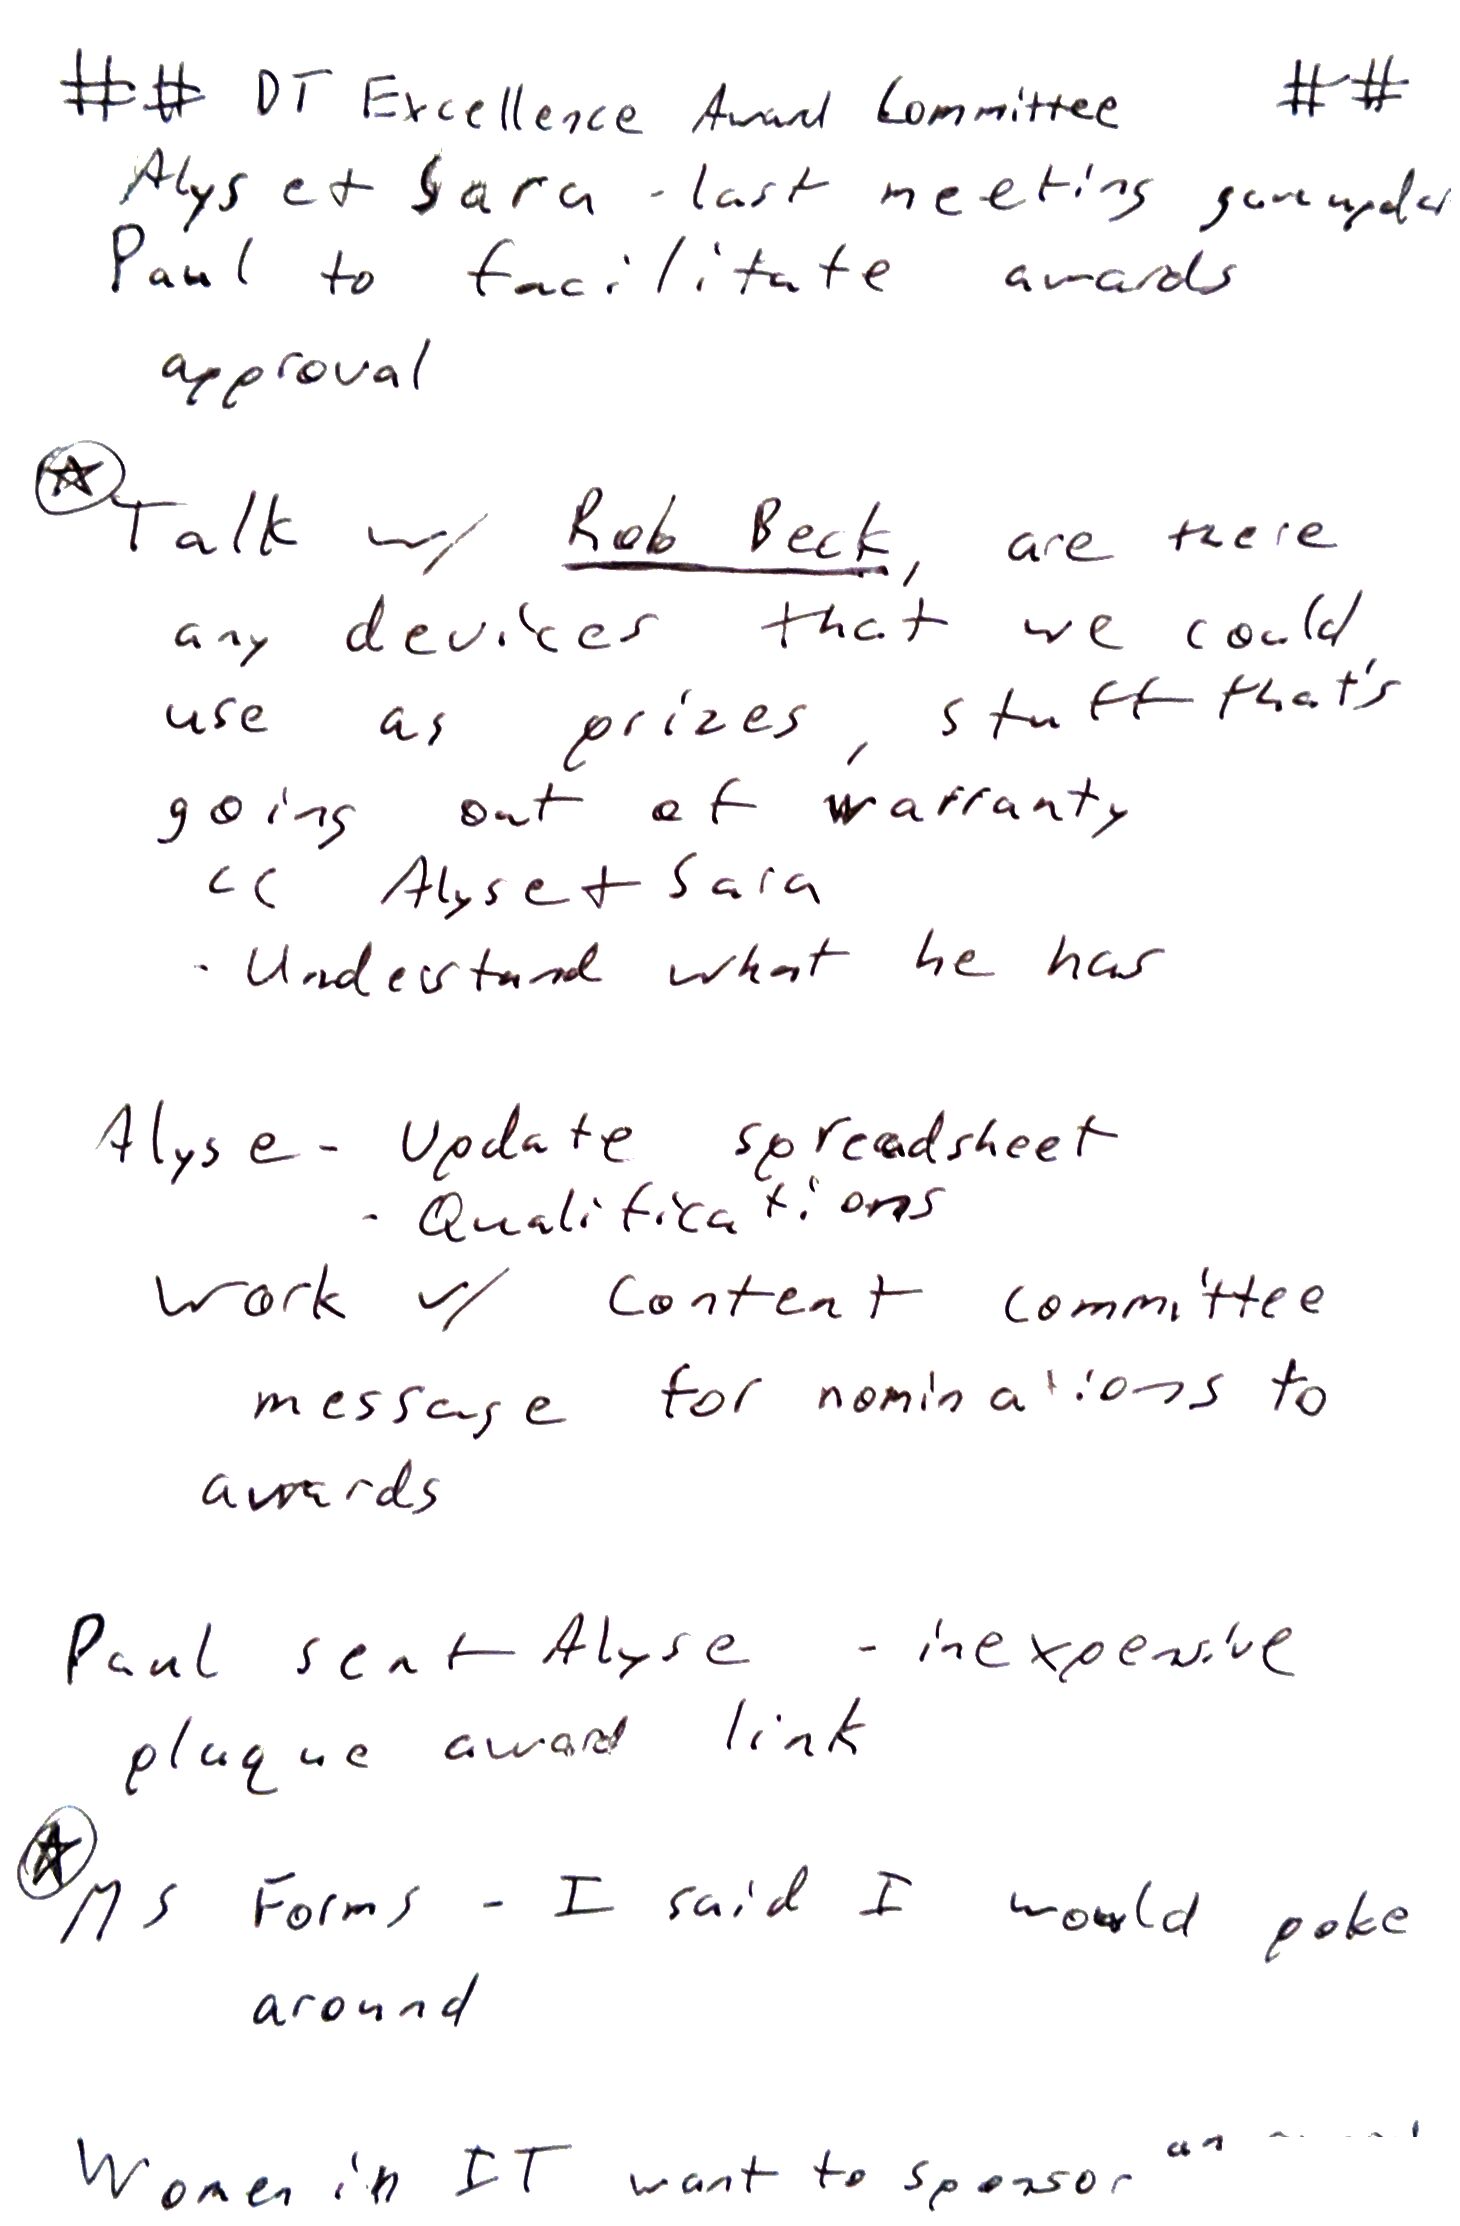 ## DT Excellence Award Committee ##
Alyse + Sara - last meeting gave
Paul to facilitate awards
approval
Talk w/ Rob Beck, are there
any devices that we could
use as prizes, stuff that's
going out of warranty
CC Alyse + Sara
- Understand what he has
Alyse - Update spreadsheet
- Qualifications
Work w/ Content committee
message for nominations to
awards
Paul sent Alyse - inexpensive
plaque award link
MS Forms - I said I would poke
around
Women in IT want to sponsor an